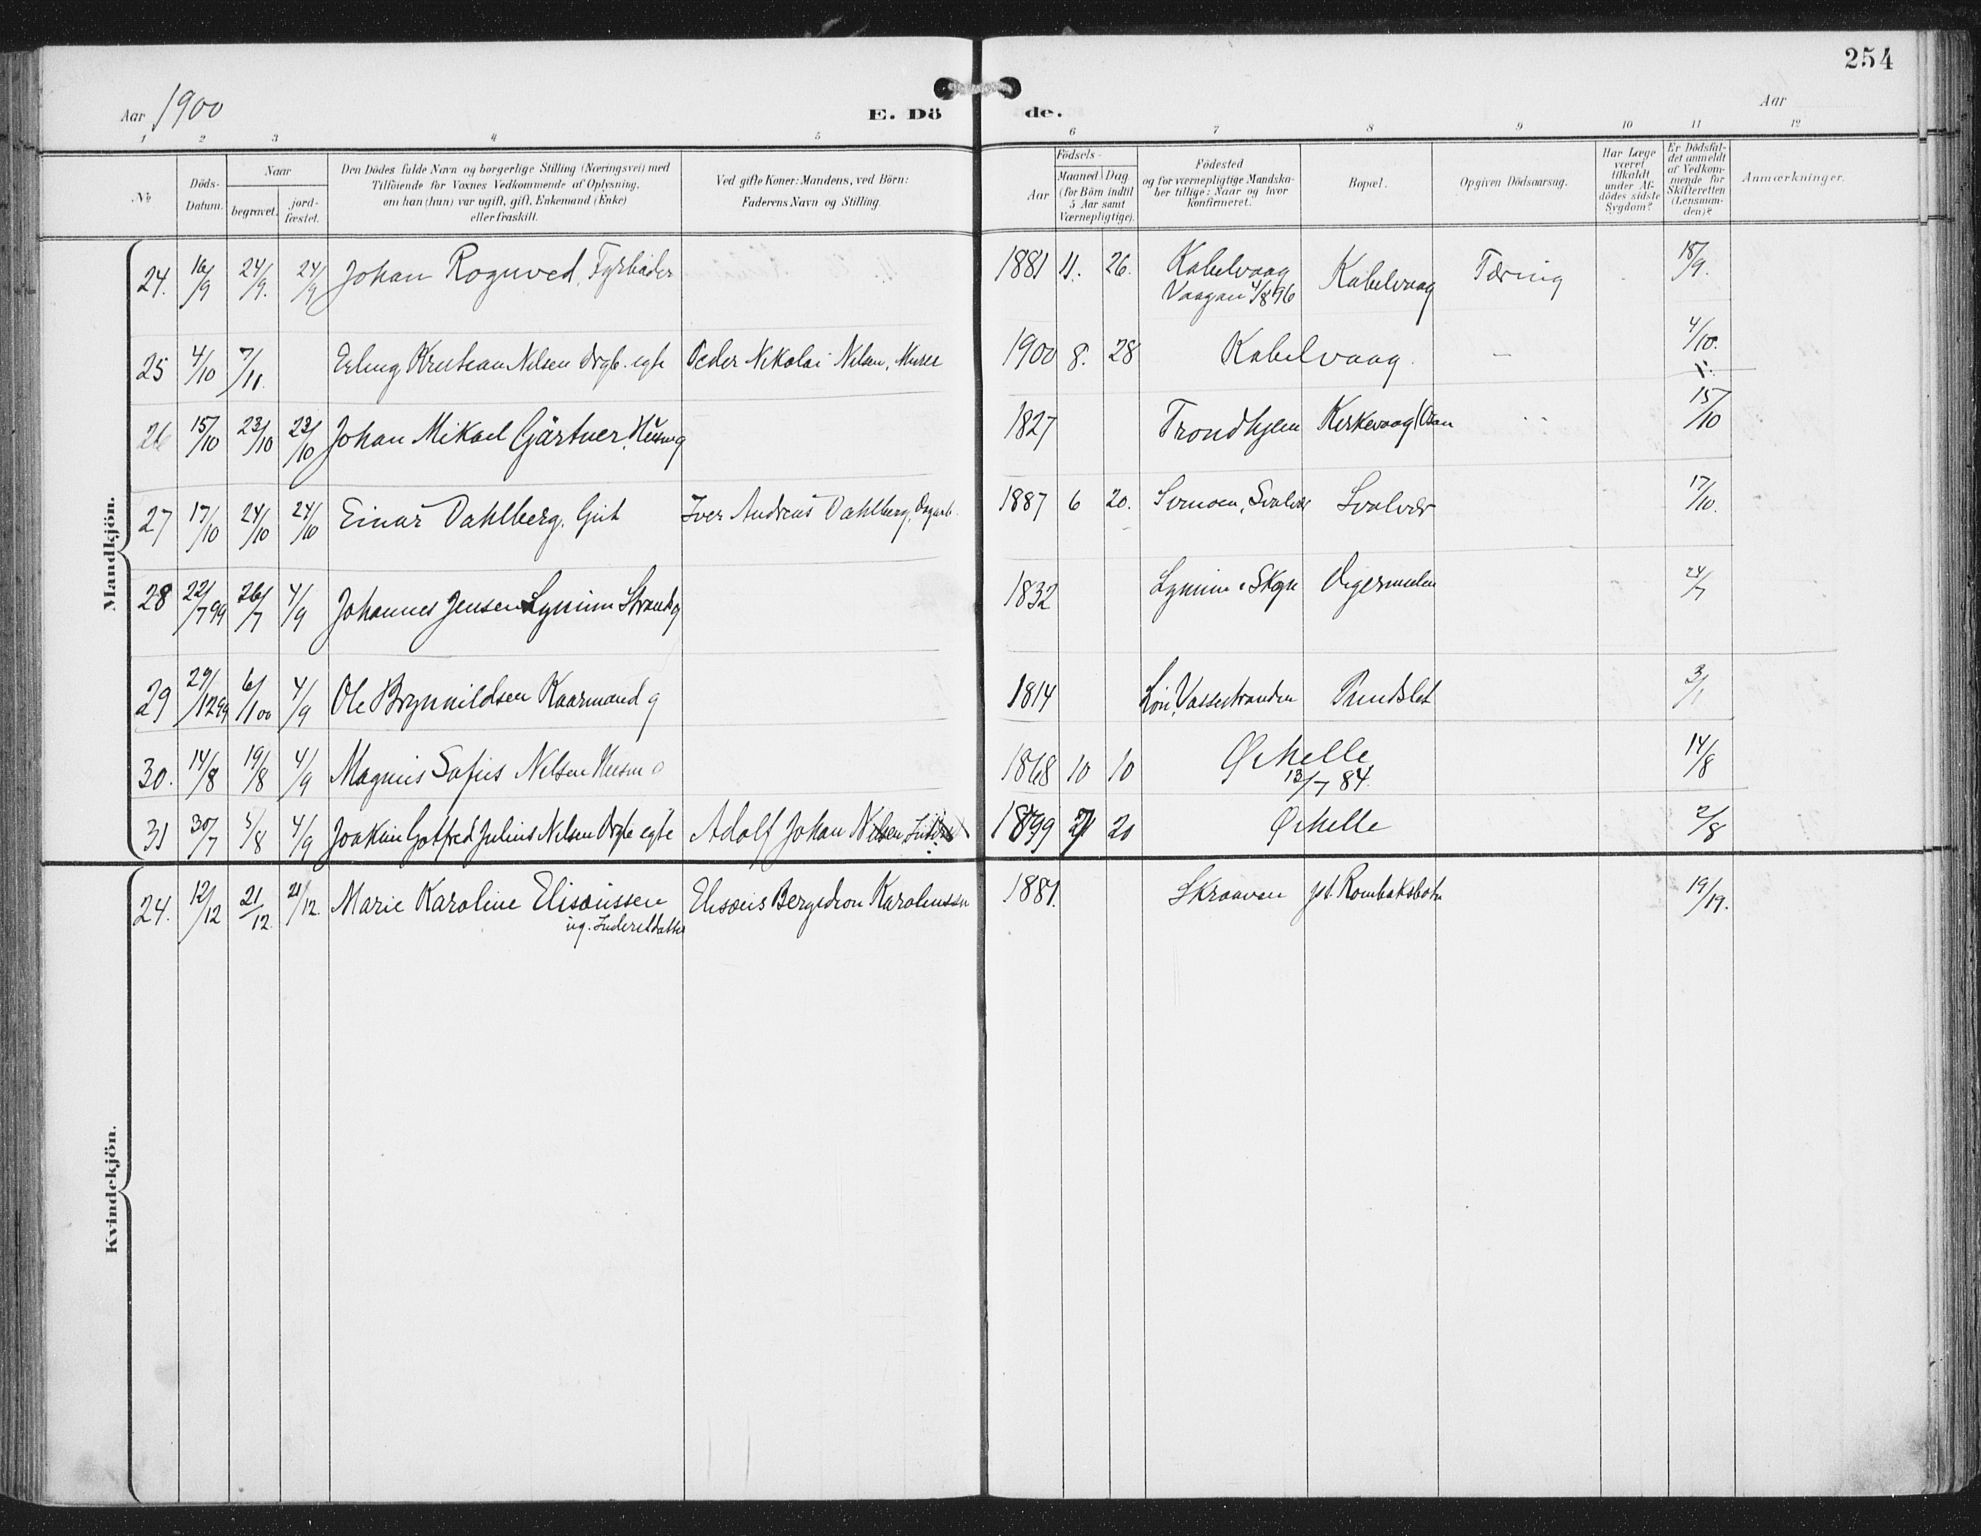 254
Aar 1900
E. Dö de.
Aar
1 2 3 4 5 6 7 8 9 10 11 12
№
Döds-
Datum.
Naar
begravet.
jord-
fæstet.
Den Dödes fulde Navn og borgerlige Stilling (Næringsvei) med
Tilföiende for Voxnes Vedkommende af Oplysning,
om han (hun) var ugift, gift, Enkemand (Enke)
eller fraskilt.
Ved gifte Koner: Mandens, ved Börn:
Faderens Navn og Stilling.
Födsels-
Aar
Maaned Dag
(for Börn indtil
5 Aar samt
Værnepligtige).
Födested
og for værnepligtige Mandska-
ber tillige: Naar og hvor
Konfirmeret.
Bopæl.
Opgiven Dödsaarsag.
Har Læge
været
tilkaldt
under Af-
dödes sidste
Sygdom?
Er Dödsfal-
det anmeldt
af Vedkom-
mende for
Skifteretten
(Lensman-
den)?
Anmærkninger.
Mandkjön.
24. 16/9 24/9. 24/9 Johan Rognved, Fyrböder 1881 11. 26. Kabelvaag Kabelvaag Tæring 18/9.
Vaagan 4/8 96
25 4/10 7/11. Erling Kristian Nilsen Drgb. egte Peder Nikolai Nilsen, Murer 1900 8. 28 Kabelvaag. 4/10.
26 15/10 23/10 23/10 Johan Mikael Gärtner, Husm g 1827 Trondhjem Kirkevaag 15/10
27 17/10 24/10 24/10 Einar Dahlberg. Gut Iver Andreas Dahlberg, Dagarb. 1887 6 20. Svinöen, Svolvær Svolvær 17/10.
28 22/7 99 26/7 4/9 Johannes Jensen Lynum Strands g 1832 Lynum i Skogn Digermulen 24/7
29 29/12 99 6/1 00 4/9 Ole Brynnildsen Kaarmand g 1814 Vassestranden Pundslet 3/1
30. 14/8 19/8 4/9 Magnus Sofus Nilsen Husm g 1868 10 10 Ørhelle 14/8
13/7 84.
31 30/7 5/8 4/9 Joakim Gotfred Julius Nilsen Drgb egte Adolf Johan Nilsen 1899 7 20 Ørhelle 2/8
Kvindekjön.
24. 12/12 21/12. 21/12. Marie Karoline Elisæussen Elisæus Bergedron Karoliussen 1881. Skraaven pt. Rombaksbotn 19/19.
ug. Inderstdatter